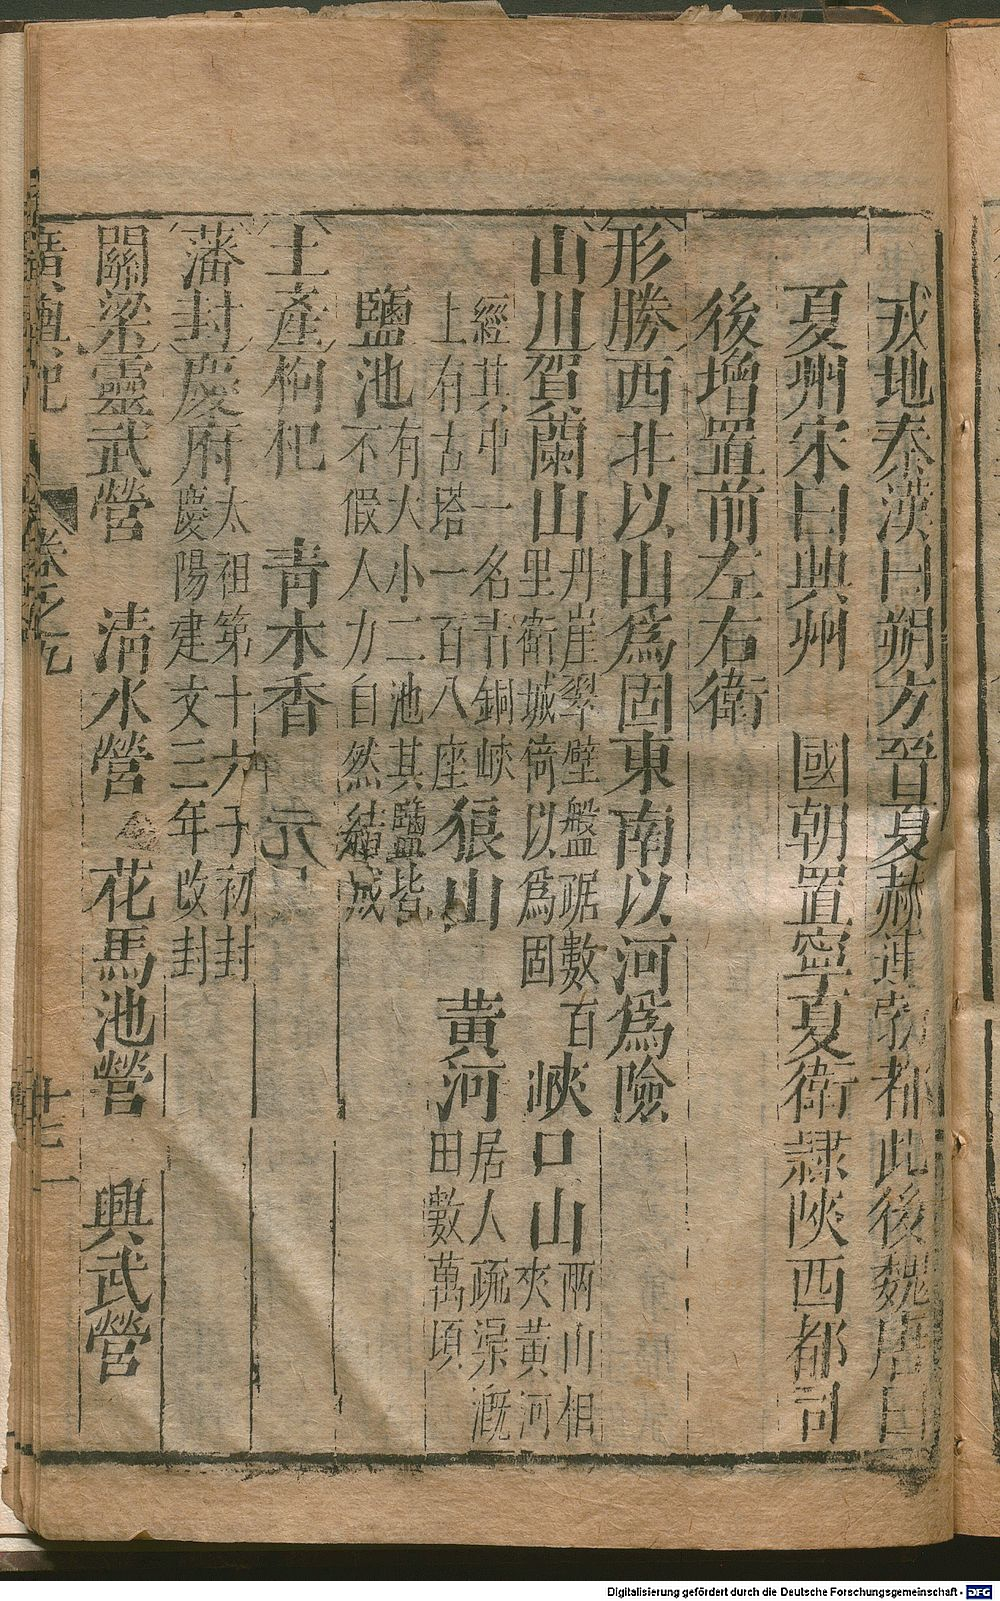 戎地秦漢曰朔方晉夏赫連勃都此後魏唐曰
夏州宋曰興州 國朝置寧夏衛隷陝西都司
後增置前左右衛
形勝西北以山爲固東南以河爲險
山川賀蘭山丹崖翠壁盤踞數百里衛城倚以爲固 峽口山兩山相夾黃河
經其中一名青銅峽上有古塔一百八座 狼山 黃河居人疏渠溉田數萬頃
鹽池有大小二池其鹽皆不假人力自然結成
土產枸杷 青木香
藩封慶府太祖第十六子初封慶陽建文三年改封
關梁靈武營 清水營 花馬池營 興武營
廣輿記 卷之九
Digitalisierung gefördert durch die Deutsche Forschungsgemeinschaft - DFG